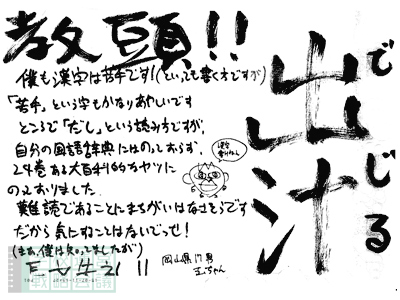 教頭!!
僕も漢字は苦手です!(といっても書く方ですが)
「苦手」という字もかなりあやしいです
ところで「だし」という読み方ですが、
自分の国語辞典にはのっておらず、
24巻ある大百科的なヤツに
のっておりました。
難読であることにまちがいはなさそうです
だから気にすることはないでっせ!!
(まあ、僕は知ってましたが)
岡山県 17 男
出汁
でじる